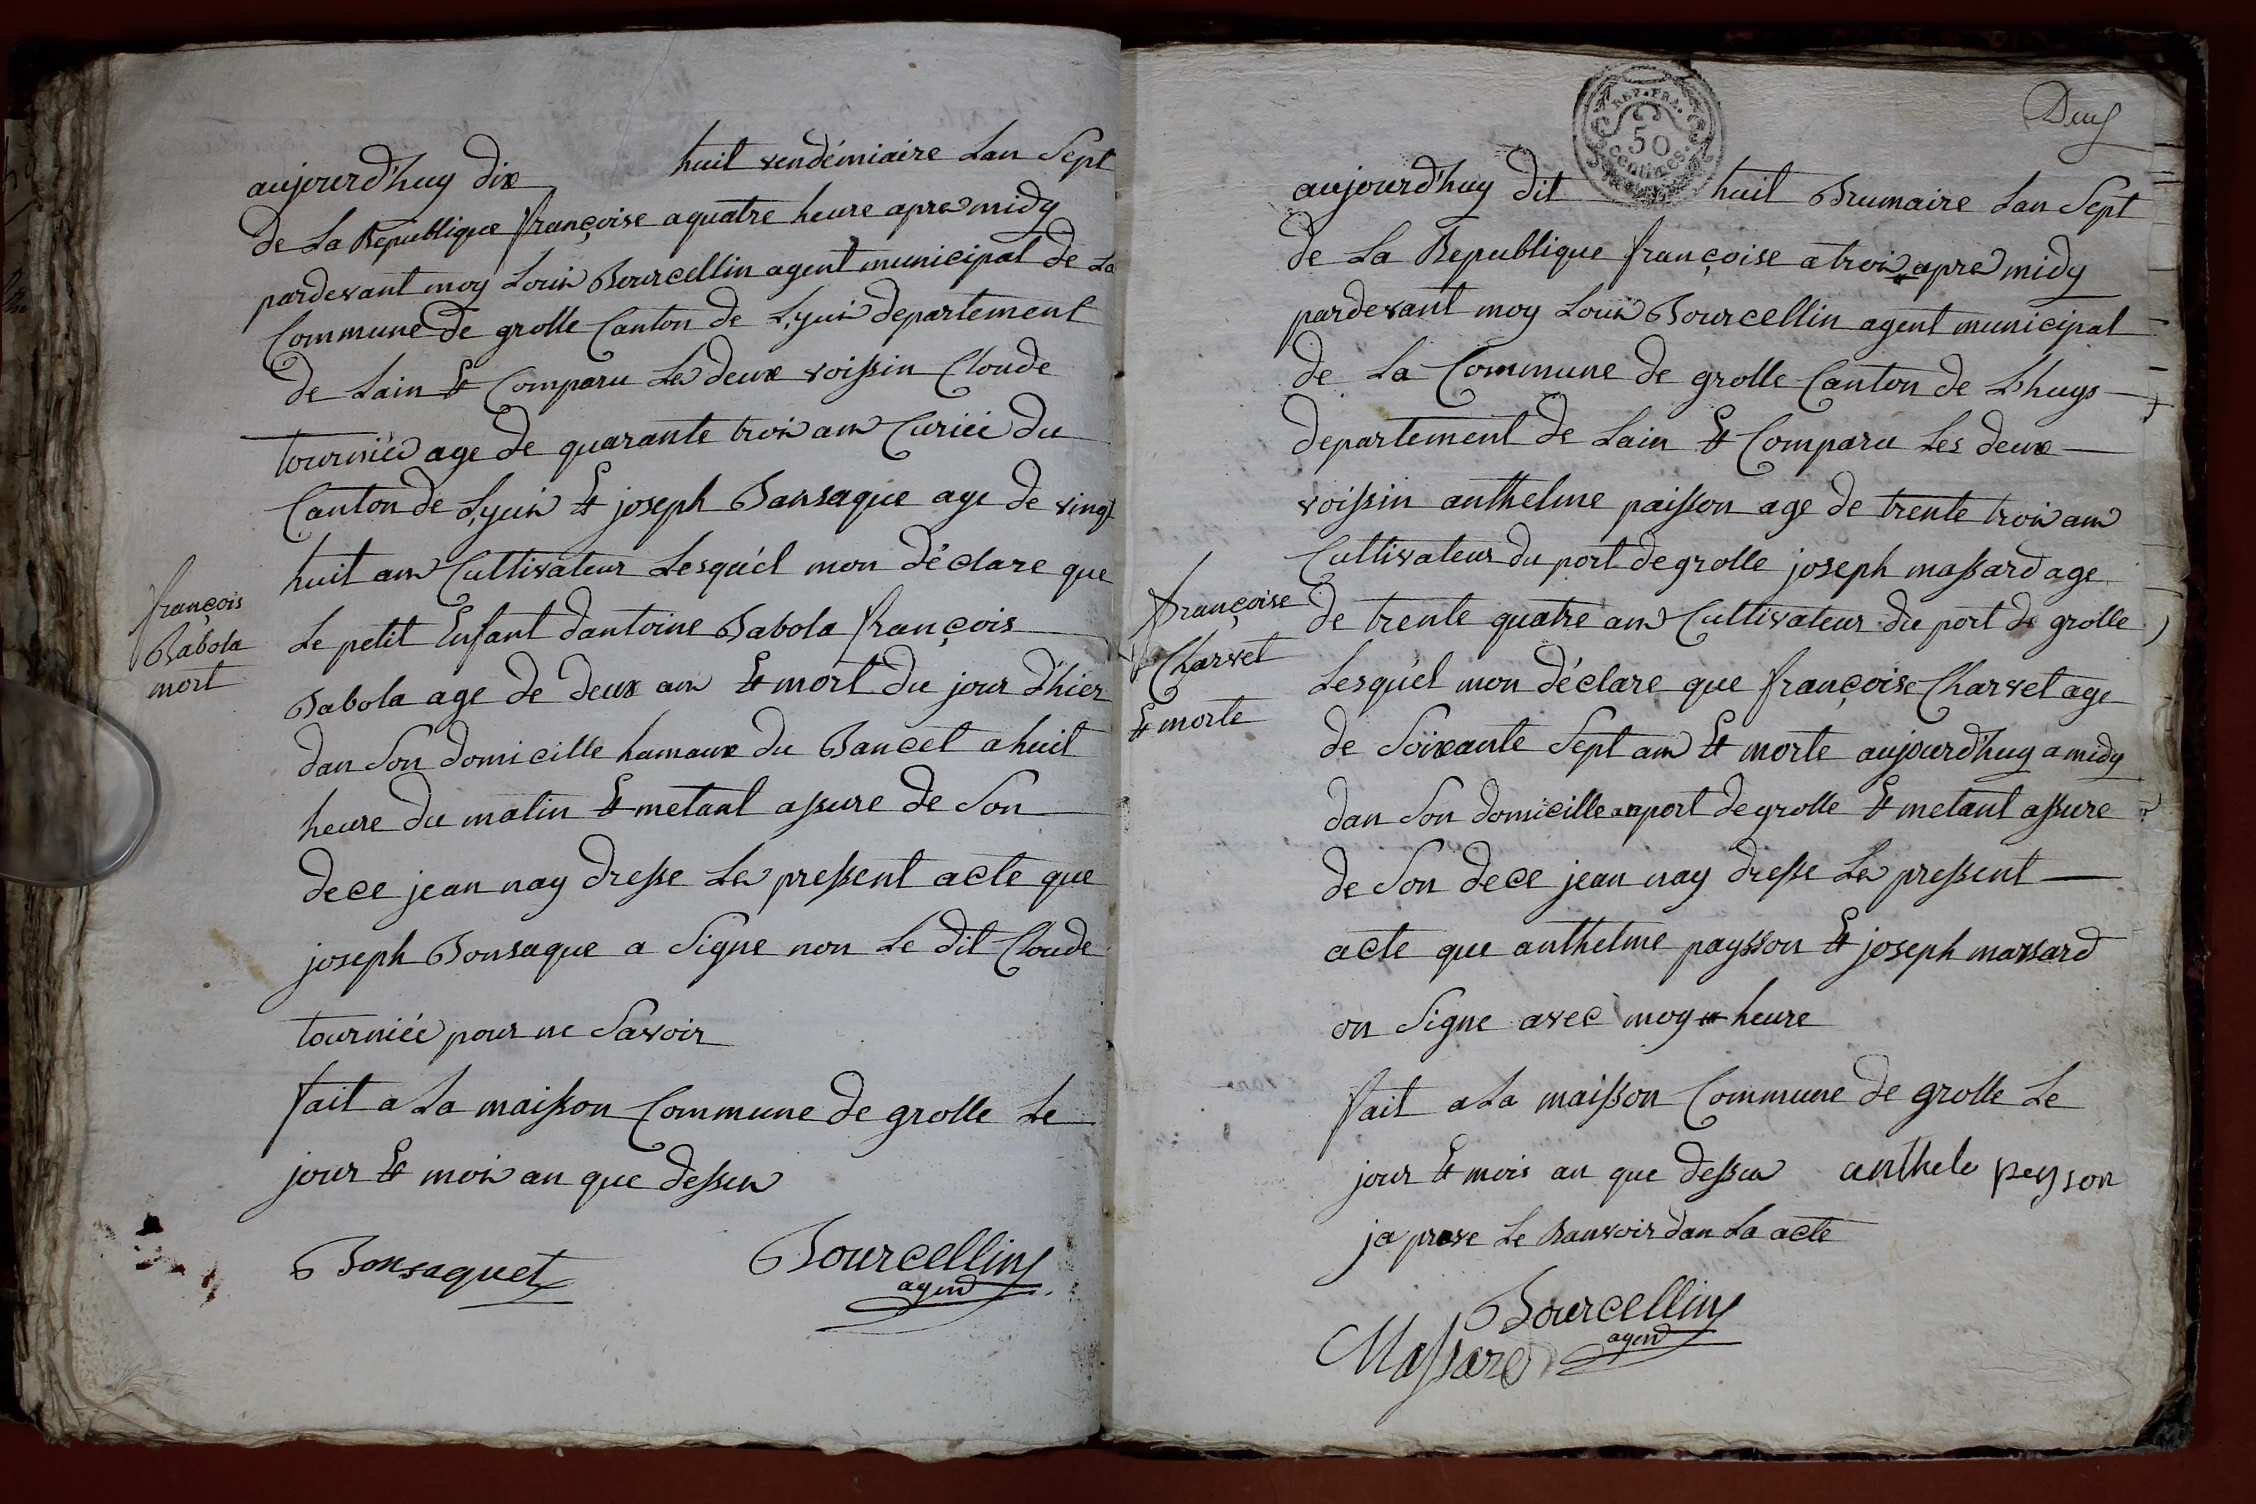 aujourd'huy dix huit vendémiaire Lan Sept
de La Republique françoise a quatre heure apre midy
pardevant moy Louis Bourcellin agent municipal de La
Commune de grolle Canton de Lyuis departement
de Lain Et Comparu Les deux voissin Cloude
tourniée age de quarante trois ans Curiée du
Canton de Lyuis Et joseph Bansaque age de vingt
huit ans Cultivateur Lesquél mon déclare que
Le petit Enfant dantoine Babola françois
Babola age de deux ans Et mort du jour d'hier
dan Son domicille hamaux du Bancet a huit
heure du matin Et metant assure de Son
dece jean nay dresse Les pressent acte que
joseph Bonsaque a Signe non Le dit Cloude
tourniée pour ne Savoir
fait a La maisson Commune de grolle Le
jour Et mois an que dessus
Bonsaquet Bourcellin
agend
françois
Babola
mort
REP. FRA.
50
centimes
Deux
aujourd'huy dit huit Brumaire Lan Sept
de La Republique françoise a trois apre midy
pardevant moy Louis Bourcellin agent municipal
de La Commune de grolle Canton de Lhuys
departement de Lain Et Comparu Les deux
voissin anthelme paisson age de trente trois ans
Cultivateur du port de grolle joseph massard age
de trente quatre ans Cultivateur du port de grolle
Lesquél mon déclare que françoise Charvet age
de Soixante Sept ans Et morte aujourd'huy a midy
dan Son domicille au port de grolle Et metant assure
de Son dece jean nay dresse Les pressent
acte que anthelme paysson Et joseph massard
on Signe avec moy heure
fait a La maisson Commune de grolle Le
jour Et mois an que dessus anthele peyson
ja prove Le Ranvoir dan La acte
Bourcellin
agend
Massard
françoise
Charvet
Et morte